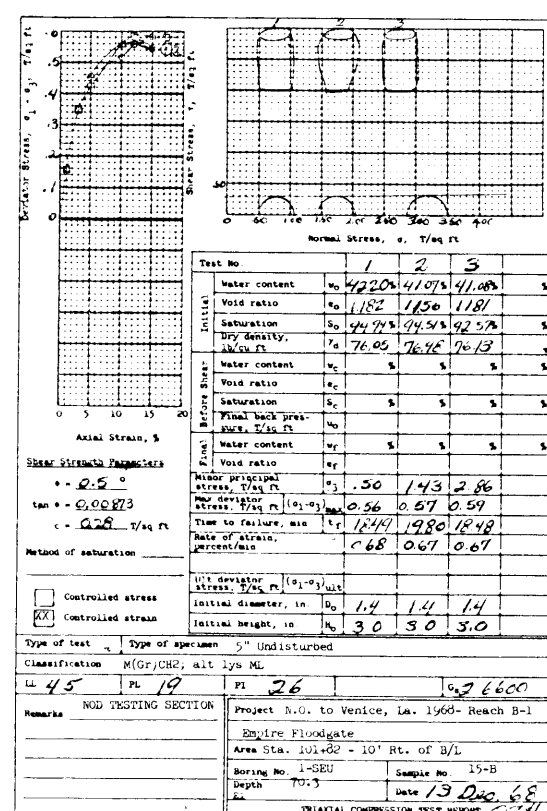 Deviator Stress, σ1 - σ3, T/sq ft
.5
.4
.3
.2
.1
0
0 5 10 15 20
Axial Strain, %
1 2 3
Shear Stress, τ, T/sq ft
.50
0 .50 1.00 1.50 2.00 2.50 3.00 3.50 4.00
Normal Stress, σ, T/sq ft
Shear Strength Parameters
φ = 0.5 °
tan φ = 0.00873
c = 0.28 T/sq ft
Method of saturation
Controlled stress
XX Controlled strain
Test No. 1 2 3
Initial
Water content w0 42.20% 41.07% 41.08% %
Void ratio e0 1.182 1.156 1.181
Saturation S0 94.94% 94.51% 92.57% %
Dry density, lb/cu ft γd 76.05 76.48 76.13
Before Shear
Water content wc % % % %
Void ratio ec
Saturation Sc % % % %
Final back pressure, T/sq ft u0
Final
Water content wf % % % %
Void ratio ef
Minor principal stress, T/sq ft σ3 .50 1.43 2.86
Max deviator stress, T/sq ft (σ1-σ3)max 0.56 0.57 0.59
Time to failure, min tf 18.49 19.80 18.48
Rate of strain, percent/min 0.68 0.67 0.67
Ult deviator stress, T/sq ft (σ1-σ3)ult
Initial diameter, in. D0 1.4 1.4 1.4
Initial height, in. H0 3.0 3.0 3.0
Type of test Type of specimen 5" Undisturbed
Classification M(Gr)CH2; alt lys ML
LL 45 PL 19 PI 26 Gs 2.6600
Remarks NOD TESTING SECTION
Project N.O. to Venice, La. 1968- Reach B-1
Empire Floodgate
Area Sta. 101+82 - 10' Rt. of B/L
Boring No. 1-SEU Sample No. 15-B
Depth El 70.3 Date 13 Dec 68
TRIAXIAL COMPRESSION TEST REPORT